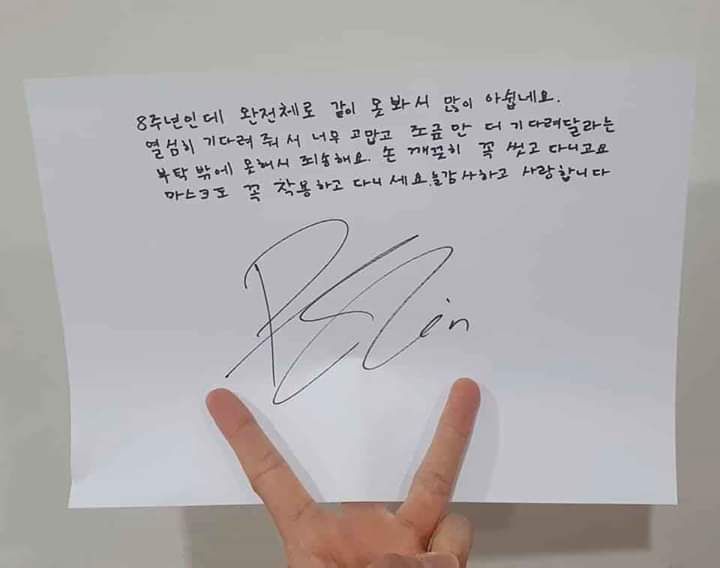 8주년인데 완전체로 같이 못봐서 많이 아쉽네요.
열심히 기다려 줘서 너무 고맙고 조금만 더 기다려달라는
부탁 밖에 못해서 죄송해요. 손 깨끗히 꼭 씻고 다니고요
마스크도 꼭 착용하고 다니세요. 늘감사하고 사랑합니다